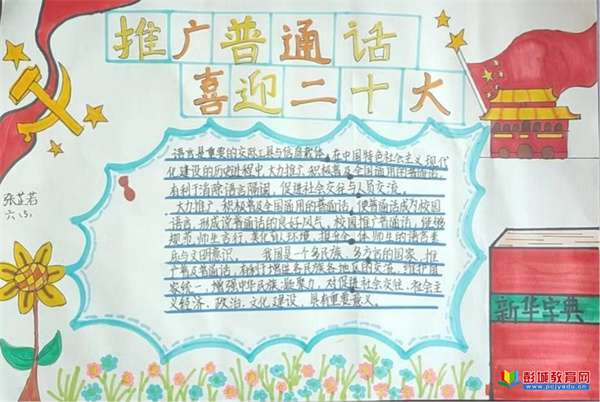 推广普通话
喜迎二十大
张芷若
六(5)
语言是重要的交际工具与信息载体,在中国特色社会主义现代
化建设的历史进程中,大力推广、积极普及全国通用的普通话,
有利于消除语言隔阂,促进社会交往与人员交流。
大力推广、积极普及全国通用的普通话,使普通话成为校园
语言,形成说普通话的良好风气,校园推广普通话,能够
规范师生言行,美化育人环境,提升全体师生的语言素
质与文明意识。 我国是一个多民族、多方言的国家,推
广普及普通话,有利于增进各民族各地区的交流,维护国
家统一,增强中华民族凝聚力,对促进社会交往,社会主
义经济、政治、文化建设,具有重要意义。
新华字典
彭城教育网
www.pcjyedu.cn